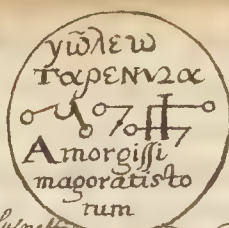 γῶλεω
ταρενυζα
Amorgiſſi
magoratisto
rum